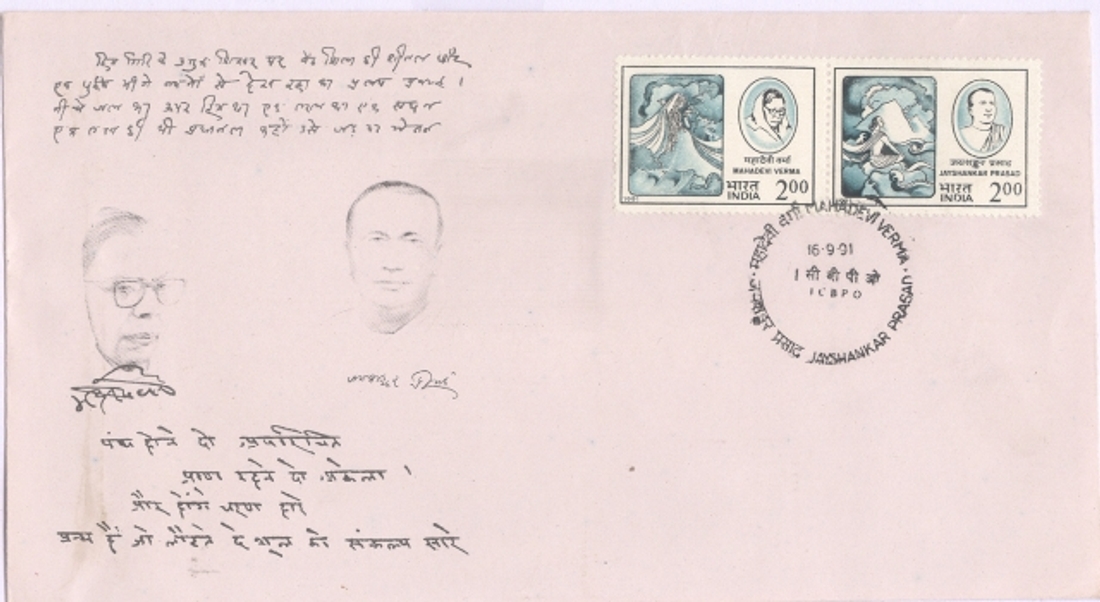 हिम गिरि के उत्तुंग शिखर पर बैठ शिला की शीतल छाँह
एक पुरुष भींगे नयनों से देख रहा था प्रलय प्रवाह ।
नीचे जल था ऊपर हिम था एक तरल था एक सघन
एक तत्व की थी प्रधानता कहो उसे जड़ या चेतन
महादेवी वर्मा
MAHADEVI VERMA
भारत
INDIA
2 00
1991
जयशङ्कर प्रसाद
JAYSHANKAR PRASAD
भारत
INDIA
2 00
महादेवी वर्मा MAHADEVI VERMA
16·9·91
सी बी पी ओ
ICBPO
जयशंकर प्रसाद JAYSHANKAR PRASAD
जयशङ्कर प्रसाद
पंथ होने दो अपरिचित
प्राण रहने दो अकेला ।
और होंगे चरण हारे
अन्य हैं जो लौटते दे शूल को संकल्प सारे